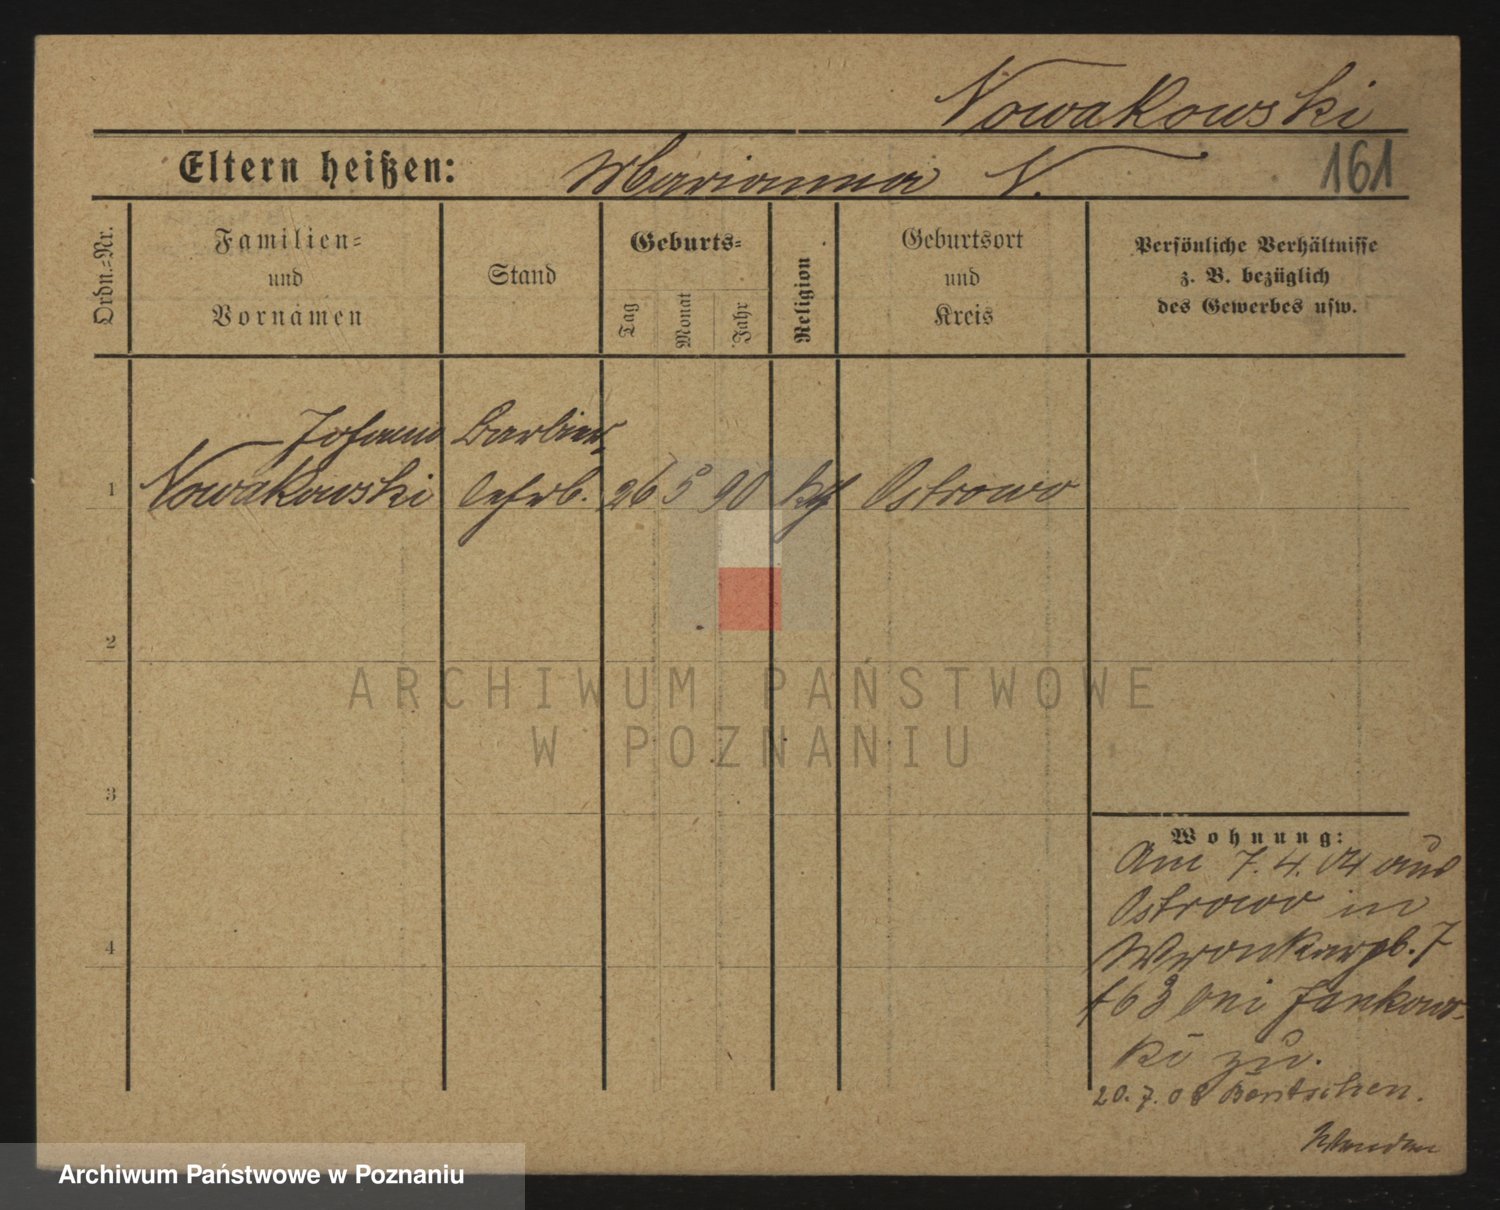 Nowakowski
Eltern heißen: Marianna N. 161
Ordn.-Nr.
Familien-
und
Vornamen
Stand
Geburts-
Tag
Monat
Jahr
Religion
Geburtsort
und
Kreis
Persönliche Verhältnisse
z. B. bezüglich
des Gewerbes usw.
Johann Barbier
1 Nowakowski lehrl. 26 5 90 kth Ostrowo
2
ARCHIWUM PAŃSTWOWE
W POZNANIU
3
4
Wohnung:
Am 7.4.04 aus
Ostrowo in
7
bei Jankows-
ki zu.
20.7.08 Bentschen.
Archiwum Państwowe w Poznaniu